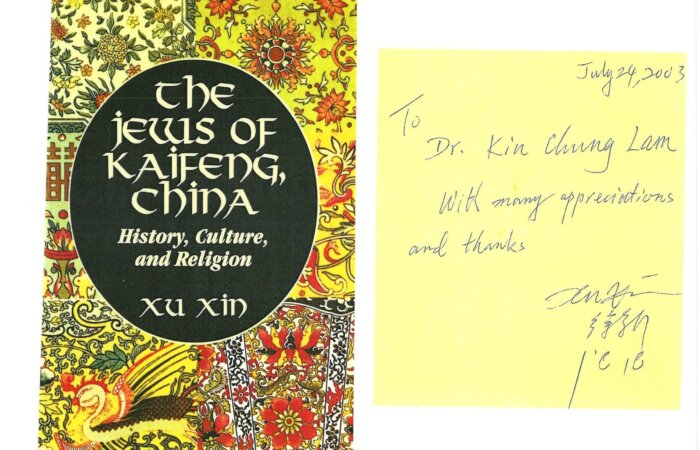 The
Jews of
Kaifeng,
China
History, Culture,
and Religion
Xu Xin
July 24, 2003
To
Dr. Kin Chung Lam
With many appreciations
and thanks
Xu Xin
徐新